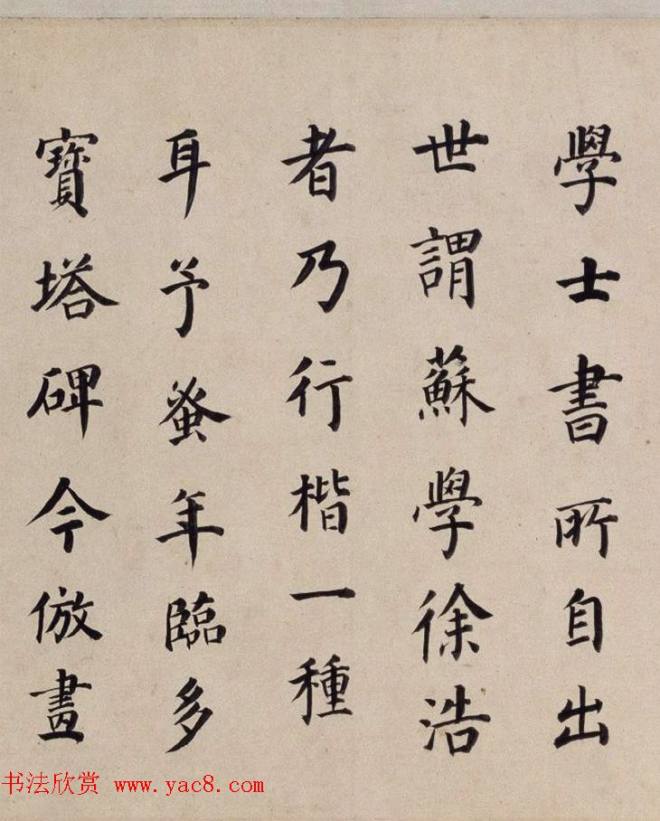 學士書所自出
世謂蘇學徐浩
者乃行楷一種
耳予蚤年臨多
寶塔碑今倣畫
书法欣赏 www.yac8.com